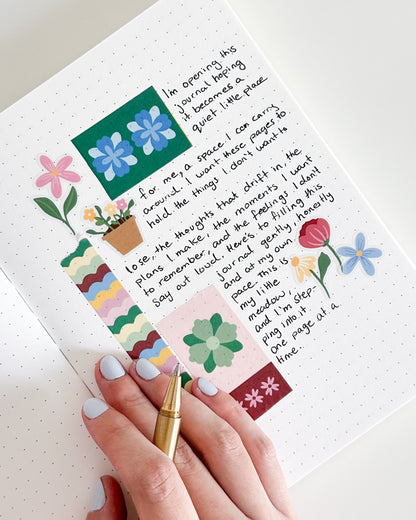 I'm opening this
journal hoping
it becomes a
quiet little place
for me, a space I can carry
around. I want these pages to
hold the things I don't want to
lose, the thoughts that drift in, the
plans I make, the moments I want
to remember, and the feelings I don't
say out loud. Here's to filling this
journal gently, honestly
and at my own
pace. This is
my little
meadow,
and I'm step-
ping into it
one page at a
time.